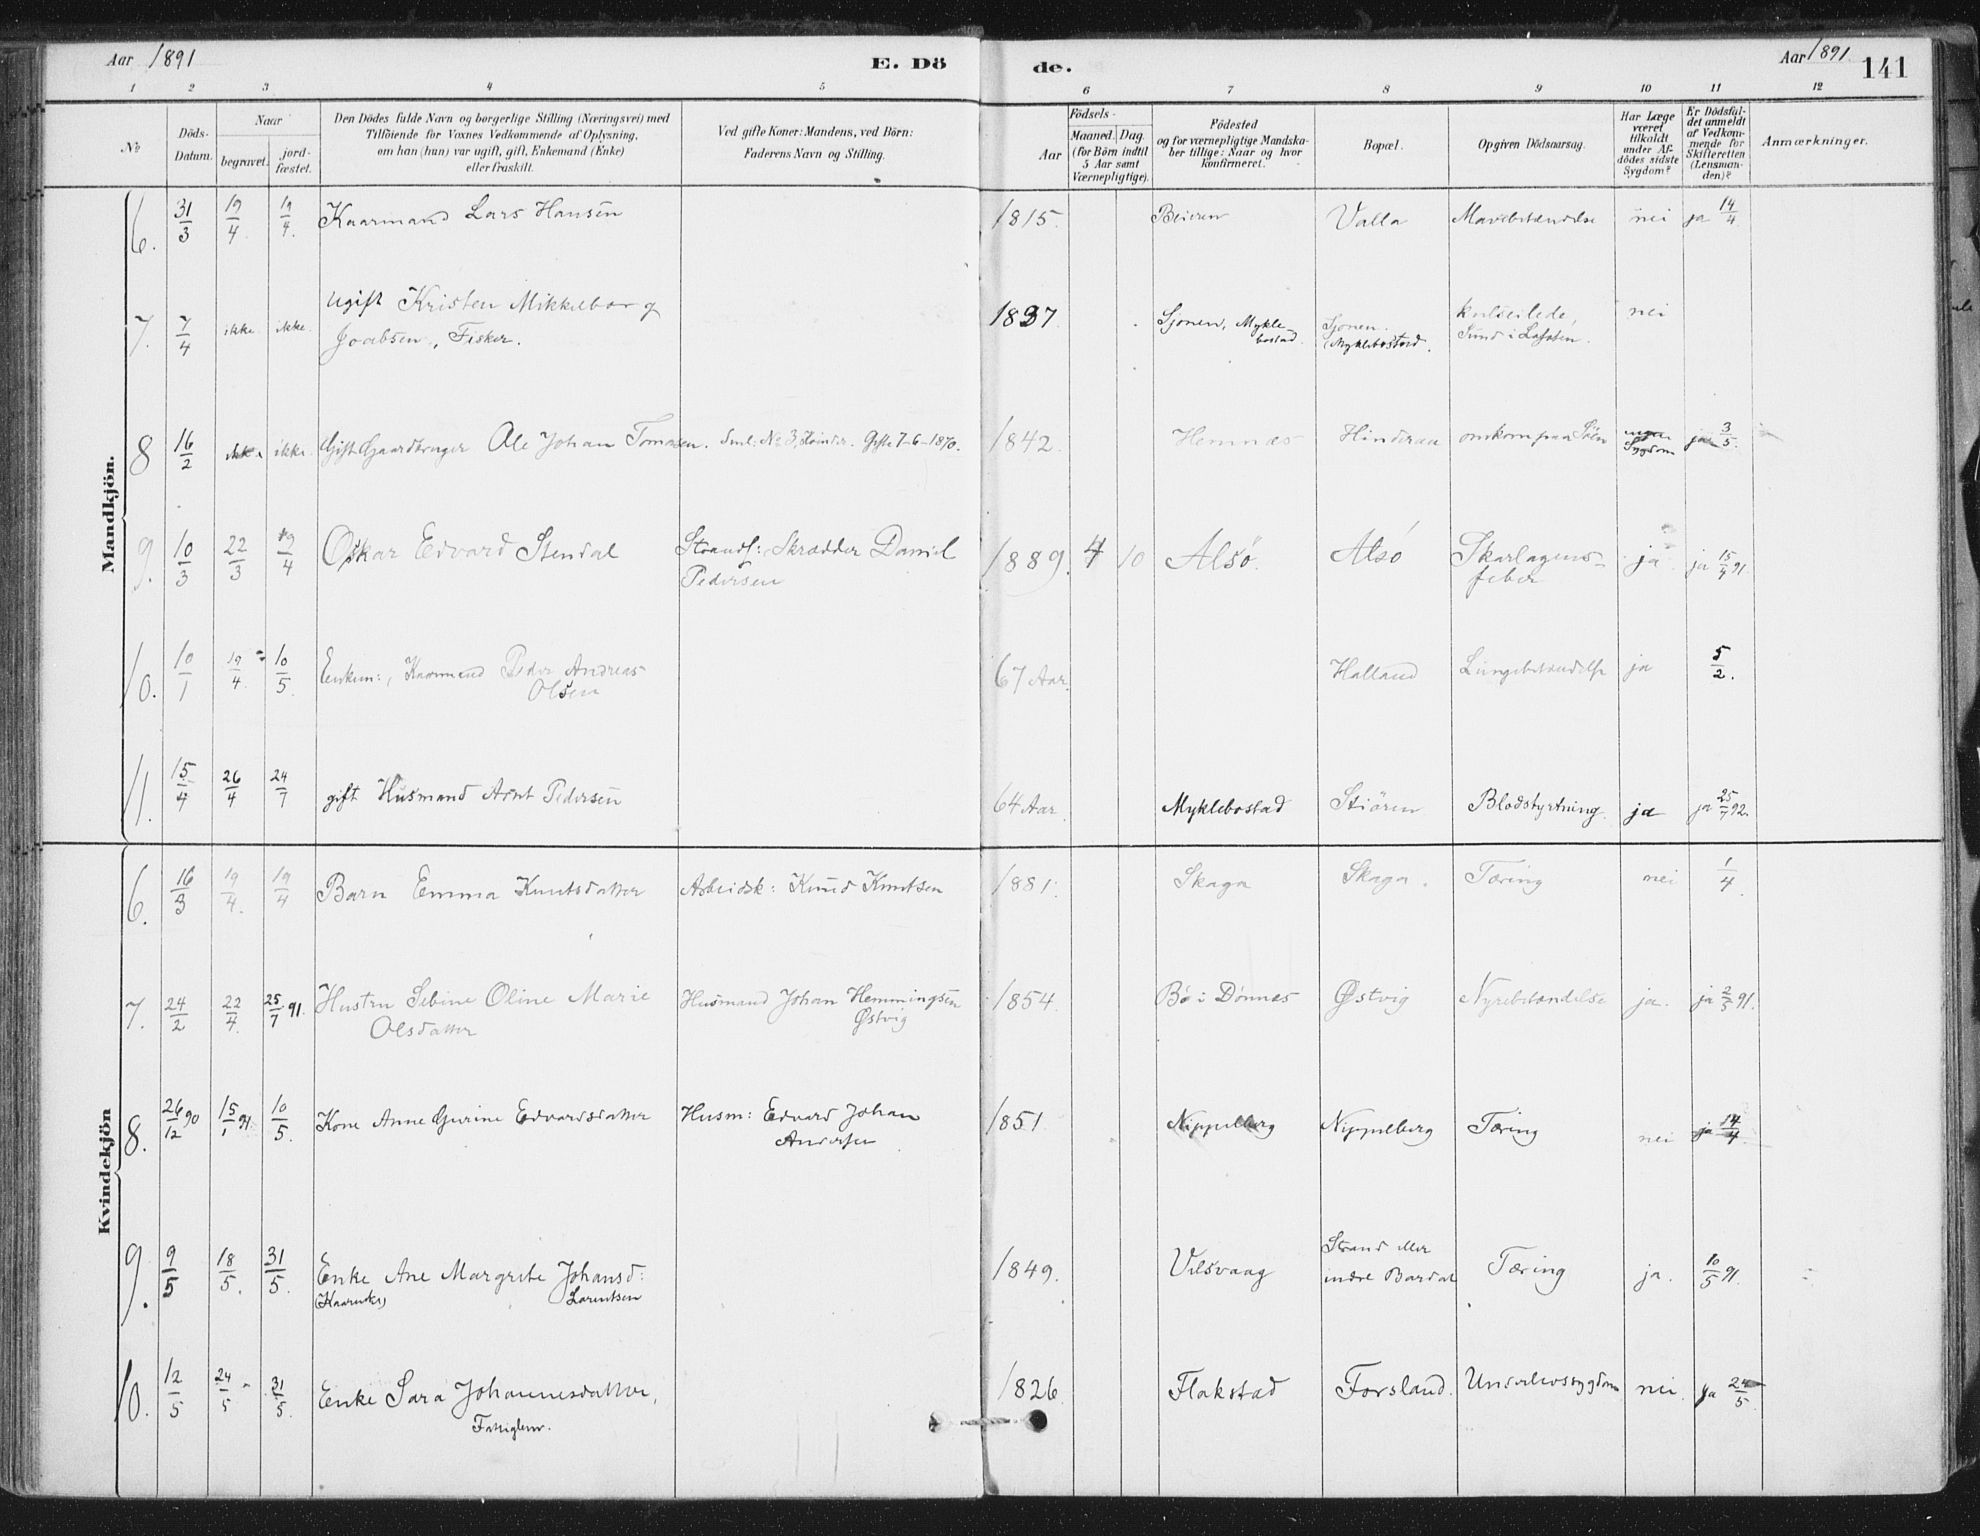 Aar 1891
E. Dö
de.
Aar 1891.
141
1 2 3 4 5 6 7 8 9 10 11 12
№
Döds-Datum.
Naar
begravet.
jord-fæstet.
Den Dödes fulde Navn og borgerlige Stilling (Næringsvei) med
Tilföiende for Voxnes Vedkommende af Oplysning,
om han (hun) var ugift, gift, Enkemand (Enke)
eller fraskilt.
Ved gifte Koner: Mandens, ved Börn:
Faderens Navn og Stilling.
Födsels-
Aar
Maaned. Dag.
(for Börn indtil
5 Aar samt
Værnepligtige).
Födested
og for værnepligtige Mandska-
ber tillige: Naar og hvor
konfirmeret.
Bopæl.
Opgiven Dödsaarsag.
Har Læge
været
tilkaldt
under Af-
dödes sidste
Sygdom?
Er Dödsfal-
det anmeldt
af Vedkom-
mende for
Skifteretten
(Lensman-
den)?
Anmærkninger.
Mandkjön.
6. 31/3 19/4. 19/4. Kaarmand Lars Hansen 1815. Beieren Valla Mavebetændelse nei ja 14/4.
7. 7/4 ikke ikke. ugift Kristen Mikkelborg
Joabsen, Fisker. 1837. Sjonen, Mykle-
bostad. Sjonen.
Myklebostad. kulseilede,
Sund i Lofoten. nei
8 16/2 ikke ikke. Gift Gaardbruger Ole Johan Tomassen. Gifte 7-6-1870. 1842. Hemnæs Hinderaa omkom paa Söen ingen
Sygdom ja 3/5.
9. 10/3 22/3 19/4 Oskar Edvard Stendal Strands: Skrædder Daniel
Pedersen 1889. 4 10 Alsø. Alsø Skarlagens-
feber ja ja 15/4 91.
10. 10/1 19/4. 10/5. Enkem:, Kaarmand Peder Andreas
Olsen 67 Aar. Halland Lungebetændelse ja 5/2.
11. 15/4 26/4 24/7 gift Husmand Arnt Pedersen 64 Aar. Myklebostad Stiören Blodstyrtning. ja ja 25/7 92.
Kvindekjön
6. 16/3 19/4. 19/4 Barn Emma Knutsdatter Arbeidsk: Knud Knutsen 1881. Skaga Skaga. Tæring nei 1/4.
7. 24/2 22/4. 25/7 91. Hustru Sebine Oline Marie
Olsdatter Husmand Johan Hemmingsen
Østvig 1854. Bø i Dønnes Østvig Nyrebetændelse ja. ja 2/5 91.
8. 26/12 90 15/1 91 10/5. Kone Anne Gurine Edvardsdatter Husm: Edvard Johan
Andersen 1851. Nippelberg Nippelberg Tæring nei ja 14/4
9. 9/5 18/5. 31/5. Enke Ane Margrete Johansd:
(Kaarenke) Larentsen 1849. Velsvaag Strand eller
indre Bardal Tæring ja. 10/5 91.
10. 12/5 24/5 31/5. Enke Sara Johannesdatter,
Fattiglem. 1826 Flakstad Forsland. Underlivssygdom nei. ja 24/5.